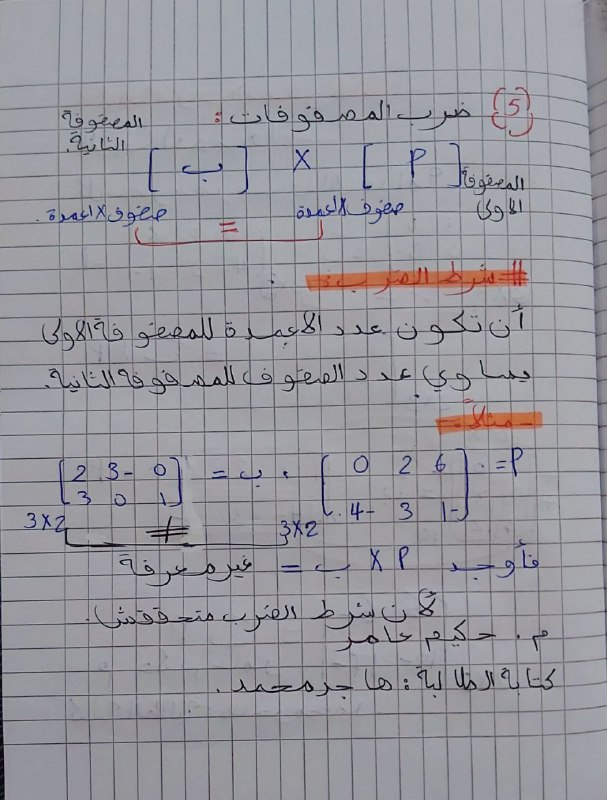 (5) ضرب المصفوفات:
المصفوفة الثانية.
[ أ ] × [ ب ]
المصفوفة الاولى
صفوف × اعمدة = صفوف × اعمدة.
# شرط الضرب :-
أن تكون عدد الاعمدة للمصفوفة الاولى
يساوي عدد الصفوف للمصفوفة الثانية.
- مثلاً :-
أ = [ 6 2 0 ، ب = [ 0 -3 2
-1 3 -4 ] 1 0 3 ]
2×3 ≠ 2×3
فأوجد أ × ب = غير معرفة
لأن شرط الضرب متحققش.
م. حكيم عامر
كتابة الطالبة : هاجر محمد.